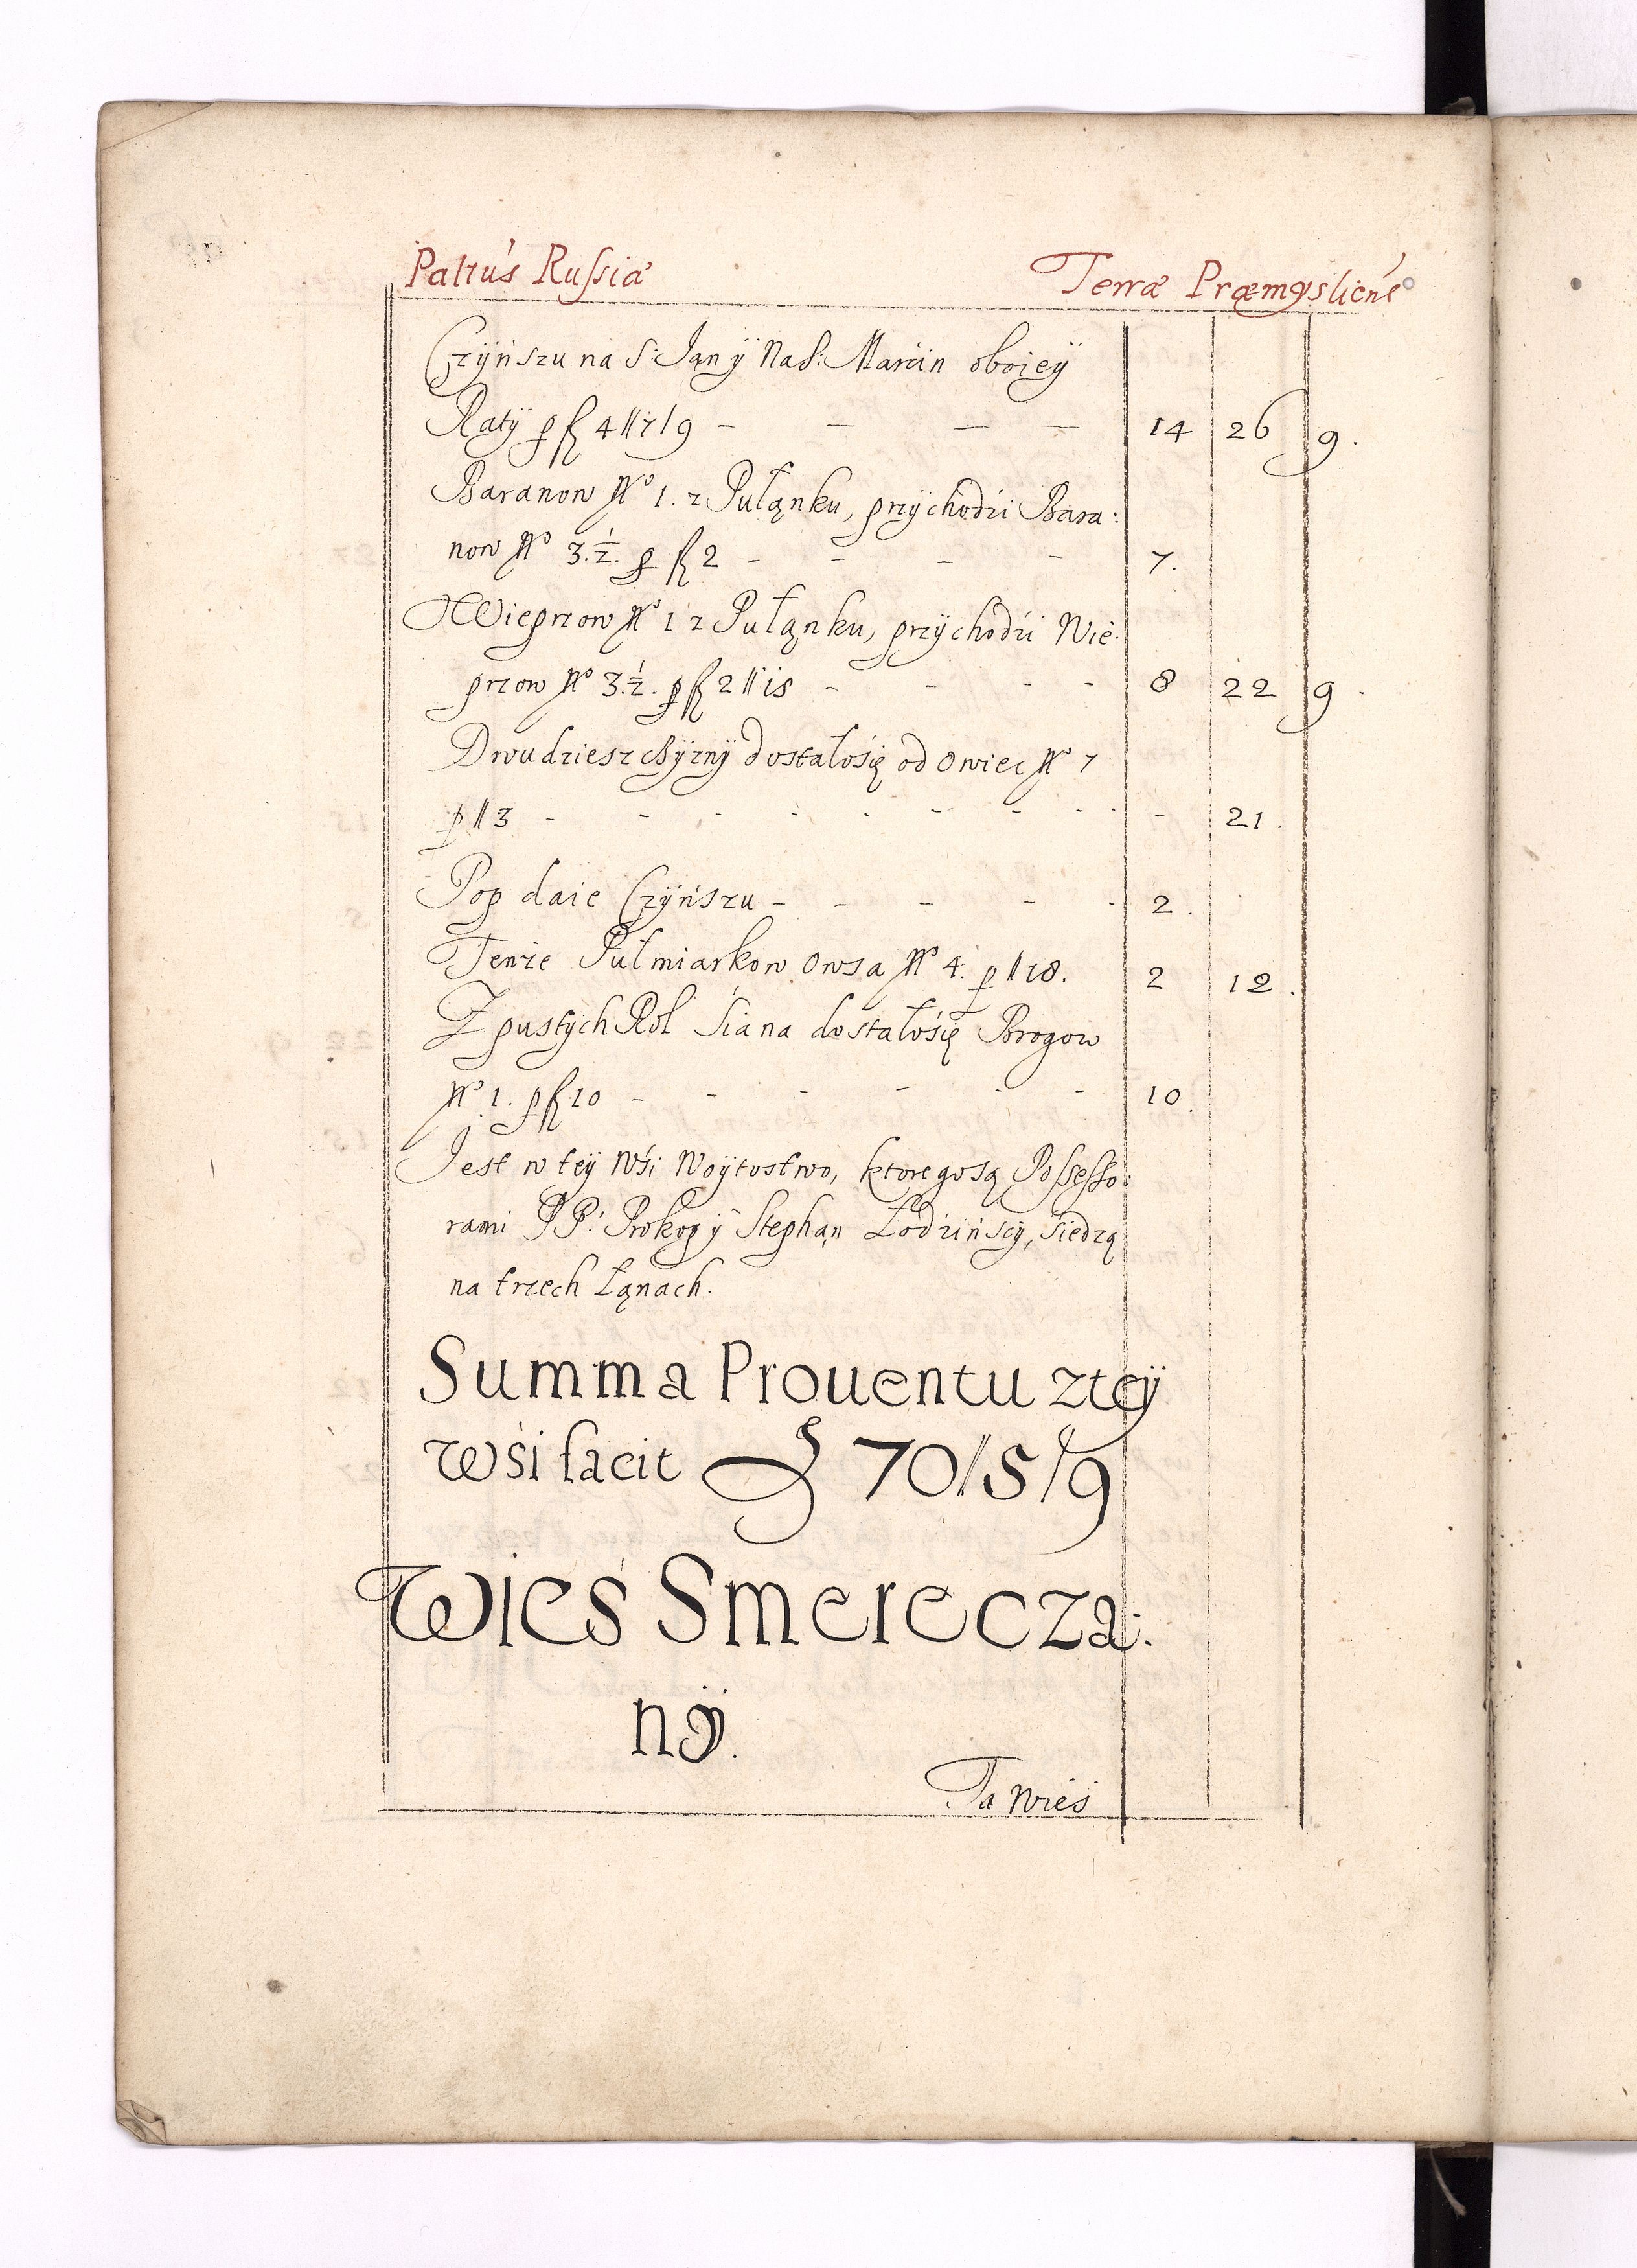 Paltus Russiæ Terræ Præmysliens
Czÿńszu na S: Janÿ Na S: Marćin oboieÿ
Ratÿ ꝑ fl 4//7/9 – – – – 14 26 9.
Baranow No 1. z Pułąnku, przÿchodźi Bara:
now No 3.½. ꝑ fl 2 – – – – 7.
Wieprzow No 1 z Pułąnku, przÿchodźi Wie:
przow No 3.½. ꝑ fl 2//15 – – – – 8 22 9.
Dwudzieszchÿznÿ dostałośię od Owiec No 7
ꝑ //3 – – – – – – – – – 21.
Pop daie Czÿńszu – – – – – 2.
Tenze Pułmiarkow Owsa No 4. ꝑ //18. 2 12.
Z pustÿch Rol Śiana dostałośię Brogow
No 1. ꝑ fl 10 – – – – – – 10.
Jest w teÿ Wśi Woÿtostwo, ktoregosą Possesso:
rami PP: Prokop ÿ Stephąn Łodzińscÿ, śiedzą
na trzech Łąnach.
Summa Prouentu zteÿ
Wśi facit fl 70//5/9
Wieś Smerecza:
nÿ.
Ta Wieś